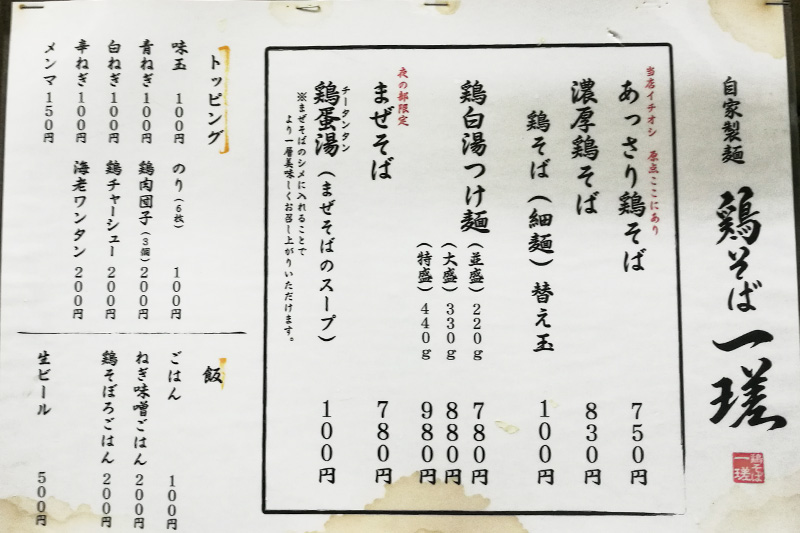 自家製麺
鶏そば 一瑳
鶏そば 一瑳
当店イチオシ 原点ここにあり
あっさり鶏そば 750円
濃厚鶏そば 830円
鶏そば(細麺)替え玉 100円
鶏白湯つけ麺(並盛)220g 780円
(大盛)330g 880円
(特盛)440g 980円
夜の部限定
まぜそば 780円
チータンタン
鶏蛋湯(まぜそばのスープ) 100円
※まぜそばのシメに入れることで
より一層美味しくお召し上がりいただけます。
トッピング
味玉 100円
青ねぎ 100円
白ねぎ 100円
辛ねぎ 100円
メンマ 150円
のり(6枚) 100円
鶏肉団子(3個) 200円
鶏チャーシュー 200円
海老ワンタン 200円
飯
ごはん 100円
ねぎ味噌ごはん 200円
鶏そぼろごはん 200円
生ビール 500円